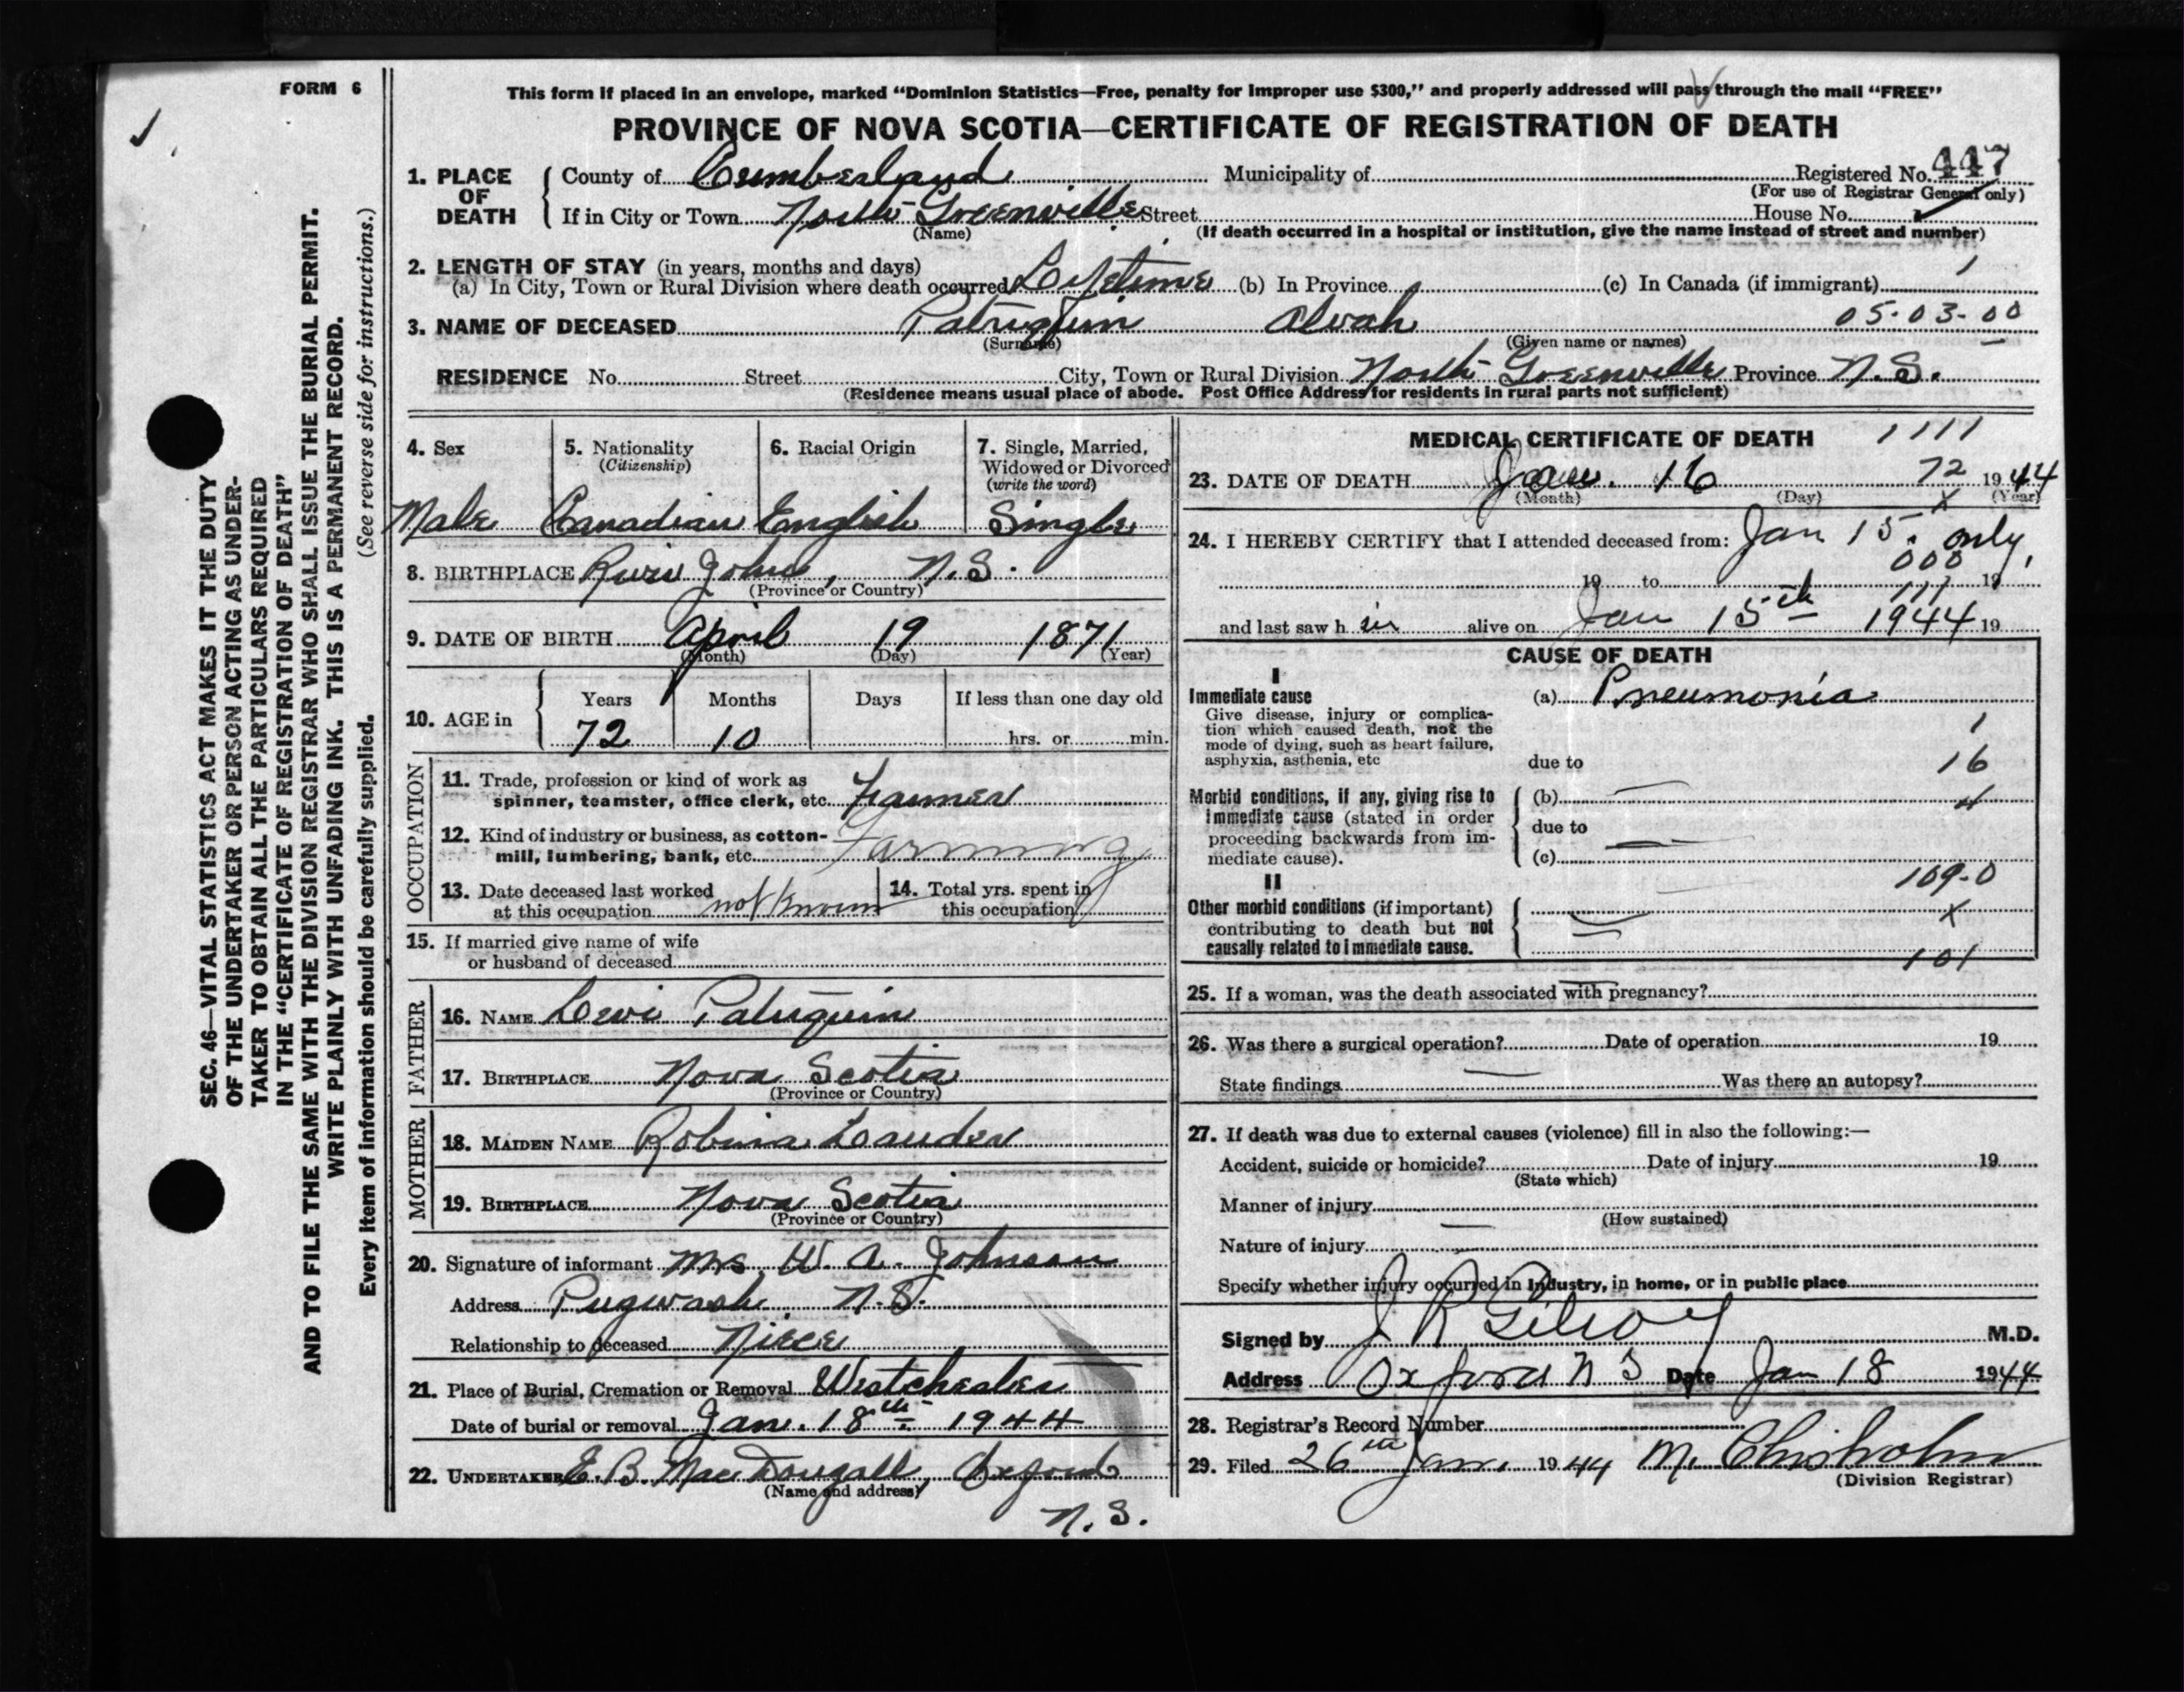 FORM 6
This form if placed in an envelope, marked “Dominion Statistics—Free, penalty for improper use $300,” and properly addressed will pass through the mail “FREE”
PROVINCE OF NOVA SCOTIA—CERTIFICATE OF REGISTRATION OF DEATH
1. PLACE OF DEATH
County of Cumberland Municipality of Registered No. 447
(For use of Registrar General only)
If in City or Town North Greenville Street House No.
(Name) (If death occurred in a hospital or institution, give the name instead of street and number)
2. LENGTH OF STAY (in years, months and days)
(a) In City, Town or Rural Division where death occurred Lifetime (b) In Province (c) In Canada (if immigrant) 1
3. NAME OF DECEASED Patriquin Alvah 05-03-00
(Surname) (Given name or names)
RESIDENCE No. Street City, Town or Rural Division North Greenville Province N.S.
(Residence means usual place of abode. Post Office Address for residents in rural parts not sufficient)
4. Sex Male
5. Nationality (Citizenship) Canadian
6. Racial Origin English
7. Single, Married, Widowed or Divorced (write the word) Single
8. BIRTHPLACE River John, N.S.
(Province or Country)
9. DATE OF BIRTH April 19 1871
(Month) (Day) (Year)
10. AGE in Years Months Days If less than one day old
72 10 hrs. or min.
OCCUPATION
11. Trade, profession or kind of work as
spinner, teamster, office clerk, etc. Farmer
12. Kind of industry or business, as cotton-
mill, lumbering, bank, etc. Farming
13. Date deceased last worked
at this occupation not known
14. Total yrs. spent in
this occupation
15. If married give name of wife
or husband of deceased
FATHER
16. NAME Levi Patriquin
17. BIRTHPLACE Nova Scotia
(Province or Country)
MOTHER
18. MAIDEN NAME Robina Lauder
19. BIRTHPLACE Nova Scotia
(Province or Country)
20. Signature of informant Mrs. W. A. Johnson
Address Pugwash N.S.
Relationship to deceased Niece
21. Place of Burial, Cremation or Removal Westchester
Date of burial or removal Jan. 18th 1944
22. UNDERTAKER E. B. MacDougall, Oxford
(Name and address)
N.S.
MEDICAL CERTIFICATE OF DEATH 1111
23. DATE OF DEATH Jan. 16 72 1944
(Month) (Day) (Year)
X
24. I HEREBY CERTIFY that I attended deceased from: Jan 15. only,
000
19 to 19
111
and last saw h im alive on Jan 15th 1944 19
CAUSE OF DEATH
I
Immediate cause (a) Pneumonia
Give disease, injury or complica-
tion which caused death, not the
mode of dying, such as heart failure,
asphyxia, asthenia, etc due to
1
16
4
Morbid conditions, if any, giving rise to
immediate cause (stated in order
proceeding backwards from im-
mediate cause).
(b)
due to
(c)
109-0
II
Other morbid conditions (if important)
contributing to death but not
causally related to immediate cause.
X
101
25. If a woman, was the death associated with pregnancy?
26. Was there a surgical operation? Date of operation 19
State findings Was there an autopsy?
27. If death was due to external causes (violence) fill in also the following:—
Accident, suicide or homicide? Date of injury 19
(State which)
Manner of injury
(How sustained)
Nature of injury
Specify whether injury occurred in industry, in home, or in public place
Signed by J R Gilroy M.D.
Address Oxford N S Date Jan 18 1944
28. Registrar's Record Number
29. Filed 26th Jan. 1944 M. Chisholm
(Division Registrar)
SEC. 46—VITAL STATISTICS ACT MAKES IT THE DUTY
OF THE UNDERTAKER OR PERSON ACTING AS UNDER-
TAKER TO OBTAIN ALL THE PARTICULARS REQUIRED
IN THE “CERTIFICATE OF REGISTRATION OF DEATH”
AND TO FILE THE SAME WITH THE DIVISION REGISTRAR WHO SHALL ISSUE THE BURIAL PERMIT.
WRITE PLAINLY WITH UNFADING INK. THIS IS A PERMANENT RECORD.
Every item of information should be carefully supplied. (See reverse side for instructions.)